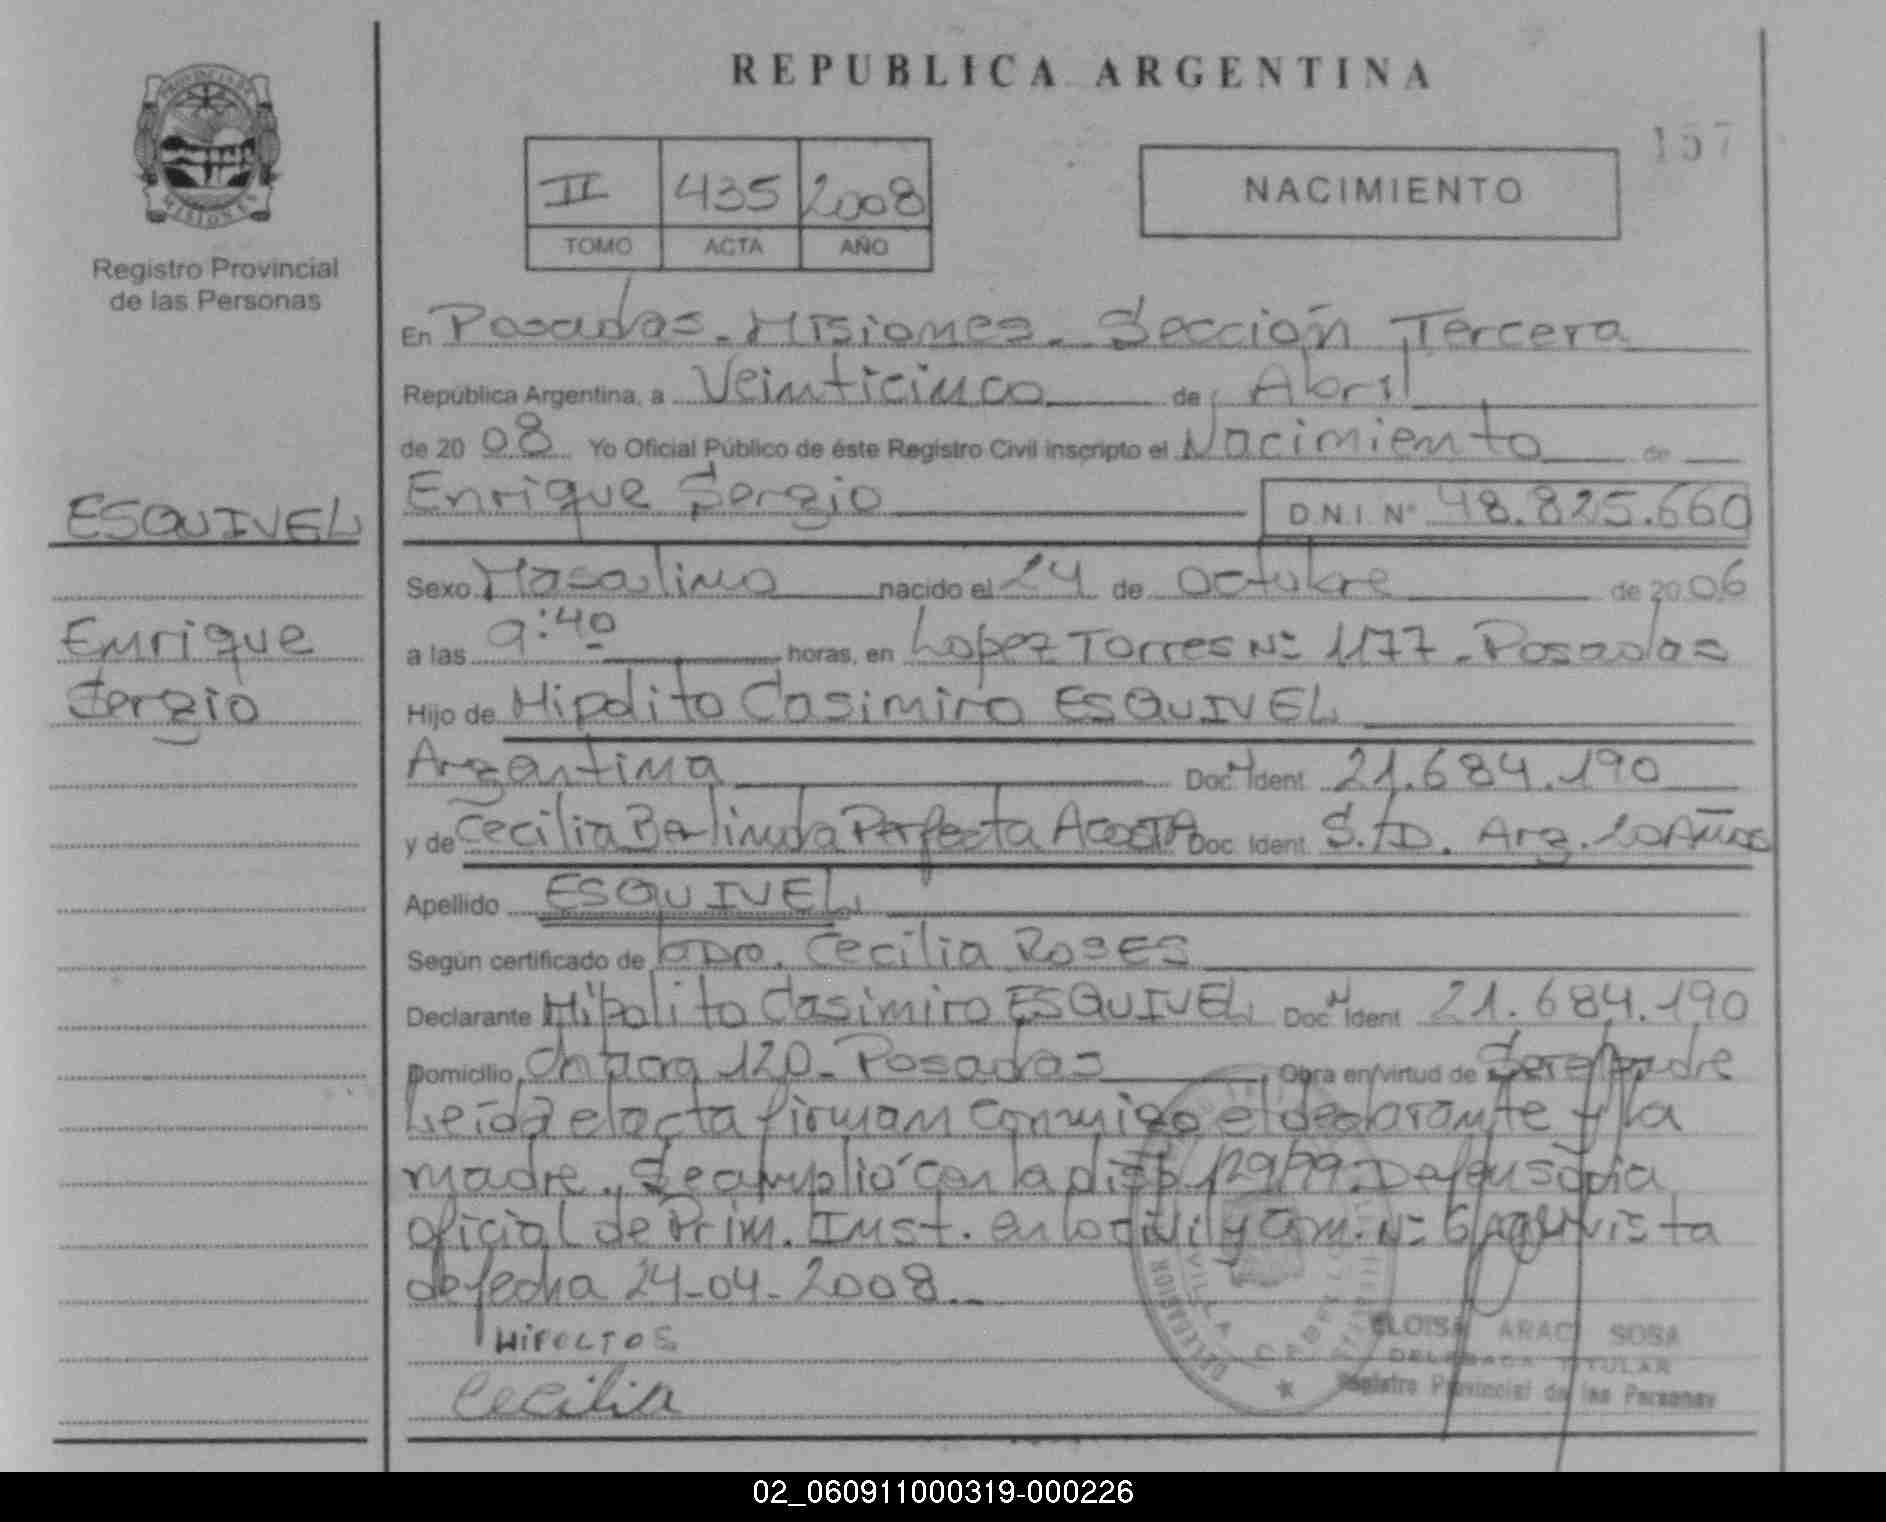 REPUBLICA ARGENTINA
157
PROVINCIA DE
MISIONES
Registro Provincial
de las Personas
II 435 2008
TOMO ACTA AÑO
NACIMIENTO
En Posadas - Misiones - Sección Tercera
República Argentina, a Veinticinco de Abril
de 20 08 Yo Oficial Público de éste Registro Civil inscripto el Nacimiento de
Enrique Sergio D.N.I. Nº 48.825.660
ESQUIVEL
Enrique
Sergio
Sexo Masculino nacido el 24 de octubre de 2006
a las 9:40 horas, en Lopez Torres Nº 1177 - Posadas
Hijo de Hipolito Casimiro ESQUIVEL
Argentina Doc. Ident 21.684.190
y de Cecilia Berlinda Perfecta ACOSTA Doc. Ident S./D. Arg. Años
Apellido ESQUIVEL
Según certificado de la Dra. Cecilia Roses
Declarante Hipolito Casimiro ESQUIVEL Doc. Ident 21.684.190
Domicilio Chacra 120 - Posadas Obra en virtud de Ser el padre
Leída el acta firman conmigo el declarante y la
madre. Se amplió con la disp 129/99. Defensoria
oficial de Prim. Inst. en lo civil y Com. Nº 6 vista
de fecha 24-04-2008.
HIPOLTO E
Cecilia
DELEGACION VILLA CABELLO
ELOISA ARACI SOSA
DELEGADA TITULAR
Registro Provincial de las Personas
02_060911000319-000226